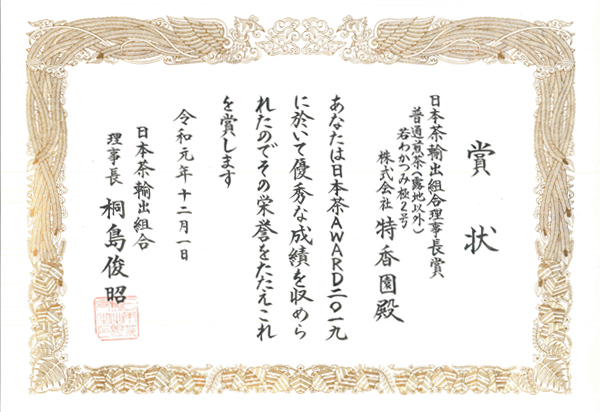 賞状
日本茶輸出組合理事長賞
普通煎茶(露地以外)
若わかつみ被2号
株式会社 特香園殿
あなたは日本茶AWARD二〇一九
に於いて優秀な成績を収めら
れたのでその栄誉をたたえこれ
を賞します
令和元年十二月一日
日本茶輸出組合
理事長 桐島俊昭